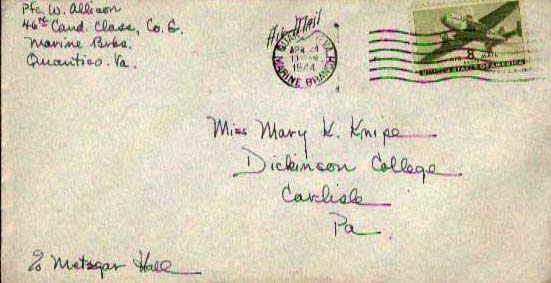 Pfc. W. Allison
46th Cand. Class, Co. G.
Marine Brks.
Quantico. Va.
Air Mail
QUANTICO, VA.
APR 24
1944
MARINE BRANCH
8¢
AIR MAIL
UNITED STATES OF AMERICA
Miss Mary K. Knipe
Dickinson College
Carlisle
Pa.
c/o Metzgar Hall